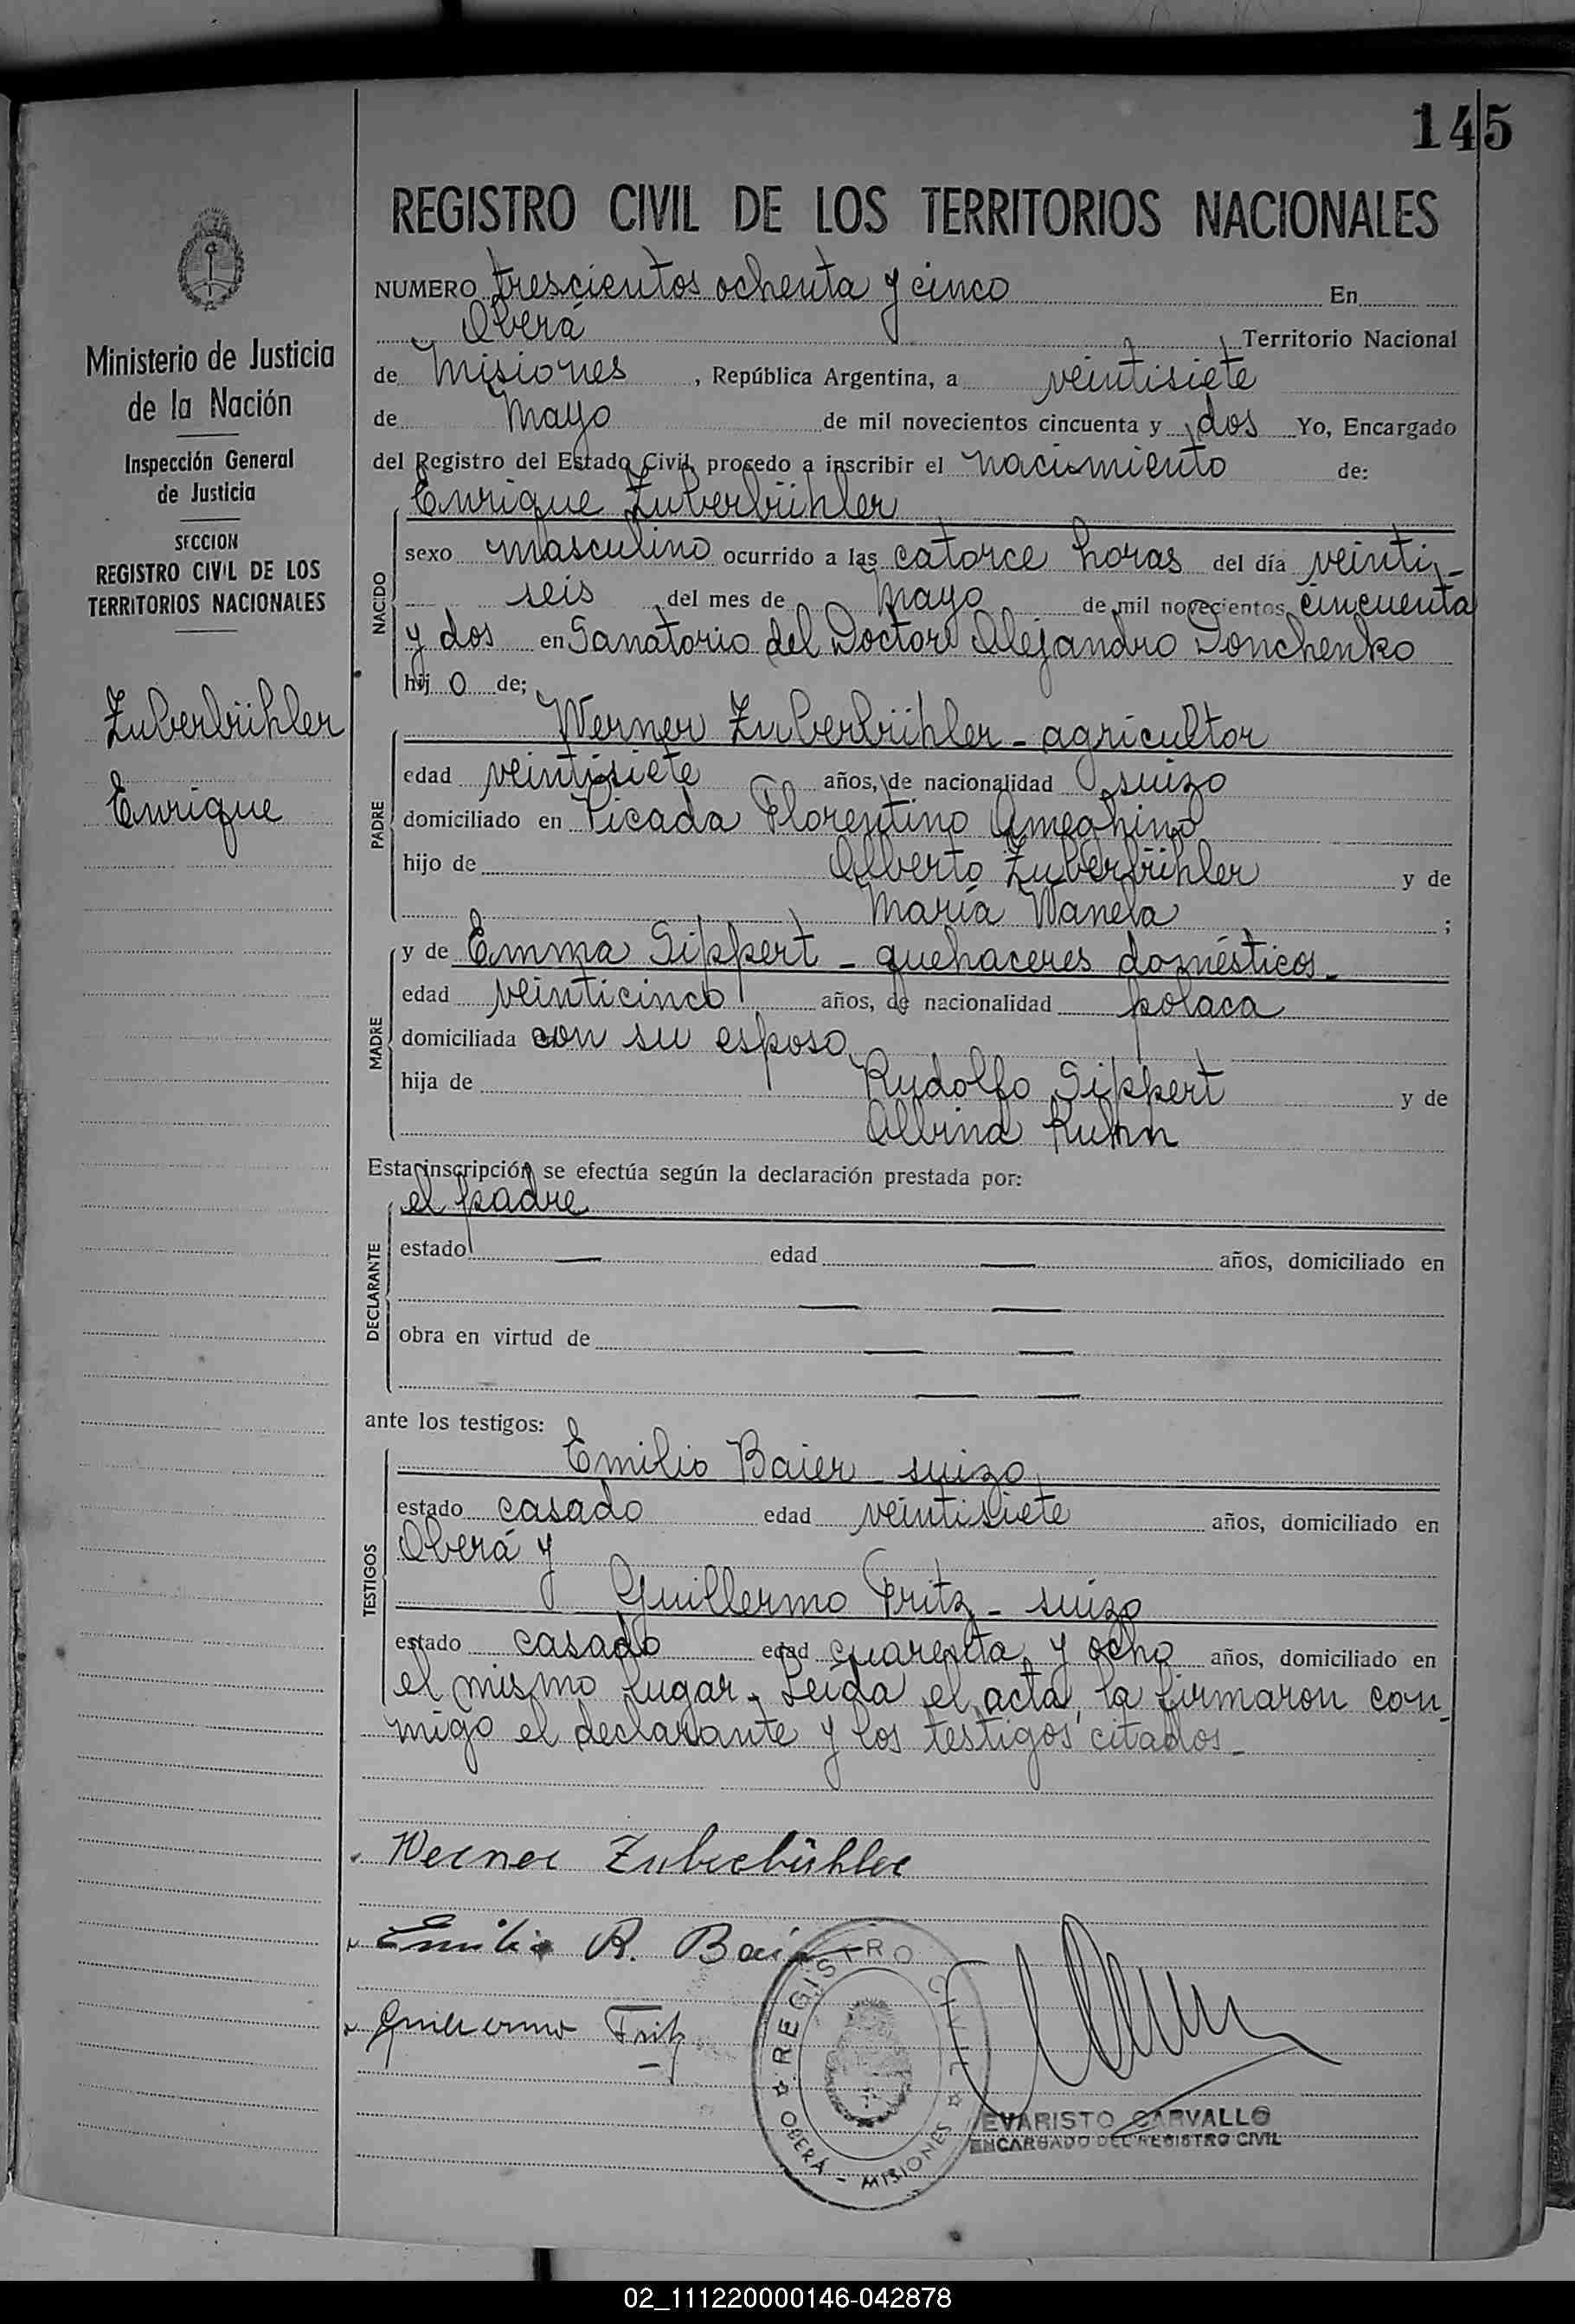 145
REGISTRO CIVIL DE LOS TERRITORIOS NACIONALES
Ministerio de Justicia
de la Nación
Inspección General
de Justicia
SECCION
REGISTRO CIVIL DE LOS
TERRITORIOS NACIONALES
Zuberbühler
Enrique
NUMERO trescientos ochenta y cinco En
Oberá Territorio Nacional
de Misiones, República Argentina, a veintisiete
de Mayo de mil novecientos cincuenta y dos Yo, Encargado
del Registro del Estado Civil, procedo a inscribir el nacimiento de:
NACIDO
Enrique Zuberbühler
sexo masculino ocurrido a las catorce horas del día veinti-
seis del mes de Mayo de mil novecientos cincuenta
y dos en Sanatorio del Doctor Alejandro Donchenko
hij o de;
PADRE
Werner Zuberbühler - agricultor
edad veintisiete años, de nacionalidad suizo
domiciliado en Picada Florentino Ameghino
hijo de Alberto Zuberbühler y de
María Wanela ;
MADRE
y de Emma Sippert - quehaceres domésticos-
edad veinticinco años, de nacionalidad polaca
domiciliada con su esposo
hija de Rudolfo Sippert y de
Albina Kuhn
Esta inscripción se efectúa según la declaración prestada por:
DECLARANTE
el padre
estado — edad — años, domiciliado en
— —
obra en virtud de — —
— —
ante los testigos:
TESTIGOS
Emilio Baier - suizo
estado casado edad veintisiete años, domiciliado en
Oberá y
Guillermo Fritz - suizo
estado casado edad cuarenta y ocho años, domiciliado en
el mismo lugar. Leída el acta, la firmaron con-
migo el declarante y los testigos citados-
Werner Zuberbühler
Emilio R. Baier
Guillermo Fritz
REGISTRO CIVIL
OBERA - MISIONES
EVARISTO CARVALLO
ENCARGADO DEL REGISTRO CIVIL
02_111220000146-042878